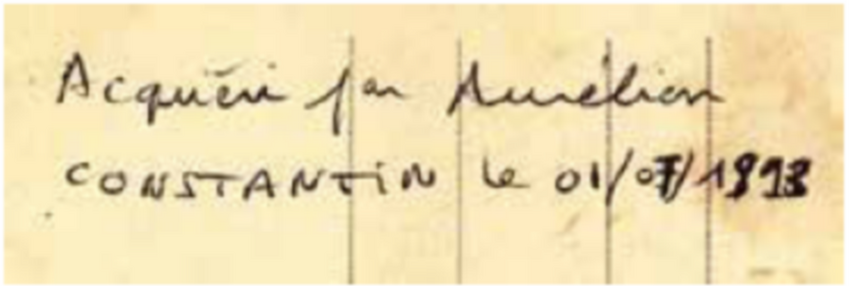 Acquéri par Aurélien
CONSTANTIN le 01/07/1898